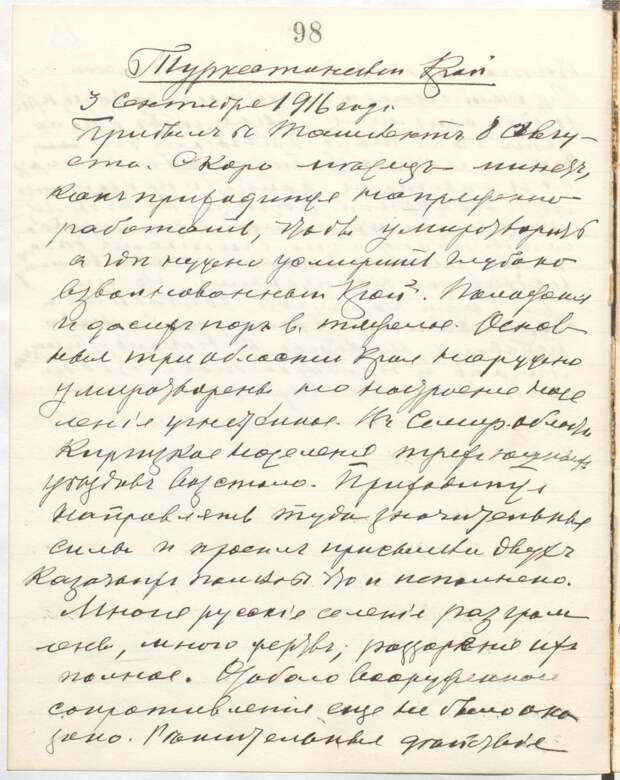 98
Туркестанский Край
3 Сентября 1916 года.
Прибыл в Ташкент 8 Авгу-
ста. Скоро месяц минет,
как приходится напряженно
работать, чтобы умиротворить
а где нужно усмирить глубоко
взволнованный Край. Положение
и до сих пор в. тяжелое. Основ
ныя три области Края наружно
умиротворены но настроение насе
ления угнетенное. В Семир. области
Киргизкое население трех южных
уездовъ возстало. Приходится
направлять туда значительныя
силы и просил присылки двухъ
Казачьих полков что и исполнено.
Многие русские селения разгром
лены, много жертв, раззорение их
полное. Особого вооруженного
сопротивления еще не было ока
зано. Решительныя действия